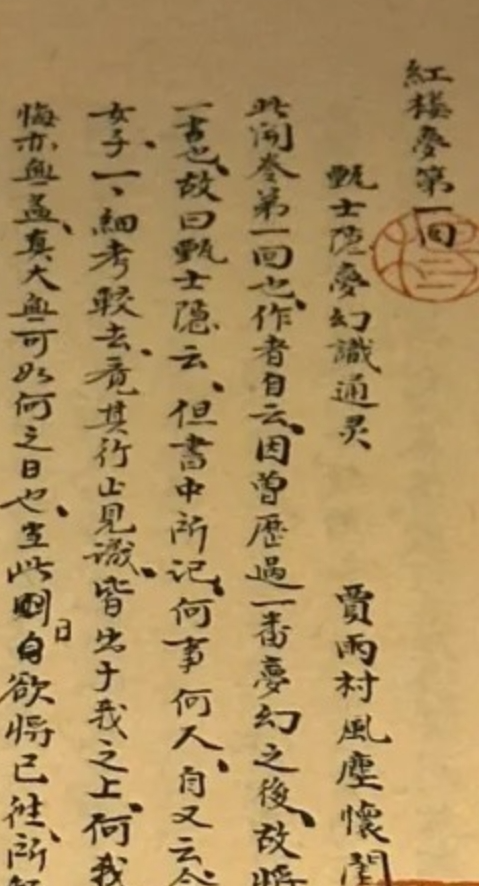 紅樓夢第一回
甄士隐夢幻識通灵　賈雨村風塵懷閨
此開卷第一回也、作者自云、因曽歷過一番夢幻之後、故将
一書也、故曰甄士隱云、但書中所記、何事何人、自又云今
女子、一、細考較去、覔其行止見識、皆出于我之上、何我
悔亦無益、真大無可如何之日也、当此則自欲将已徃所